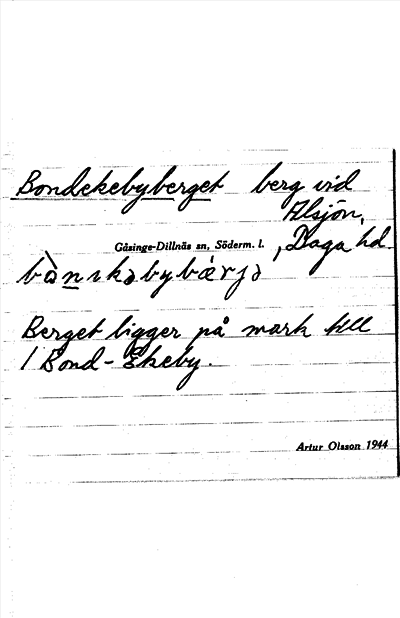 Bondekebyberget berg vid
Alsjön,
Gåsinge-Dillnäs sn, Söderm. l. , Daga hd.
bὼn ıkəbybærjə
Berget ligger på mark till
1 Bond-Ekeby.
Artur Olsson 1944